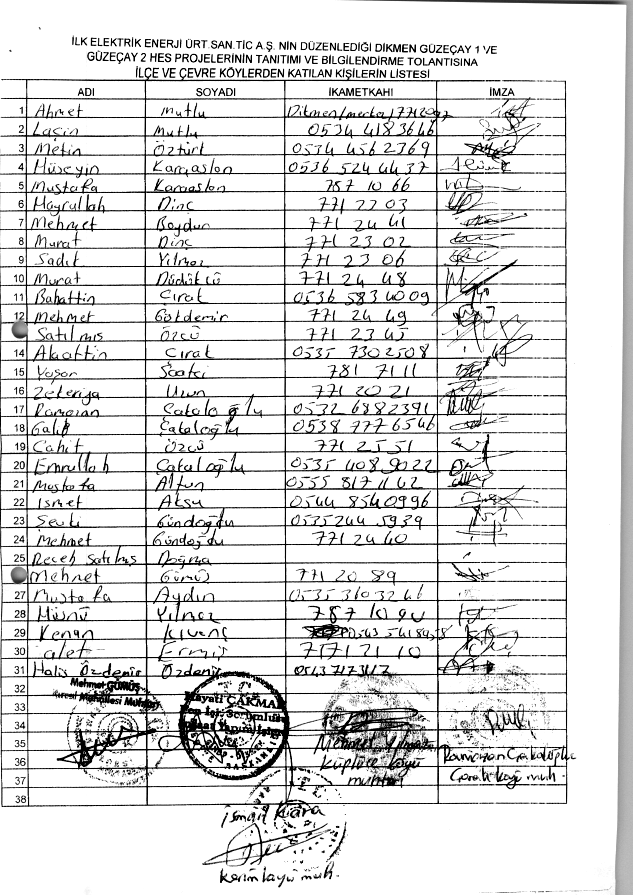 İLK ELEKTRİK ENERJİ ÜRT.SAN.TİC A.Ş. NİN DÜZENLEDİĞİ DİKMEN GÜZEÇAY 1 VE
GÜZEÇAY 2 HES PROJELERİNİN TANITIMI VE BİLGİLENDİRME TOLANTISINA
İLÇE VE ÇEVRE KÖYLERDEN KATILAN KİŞİLERİN LİSTESİ
ADI SOYADI İKAMETKAHI İMZA
1 Ahmet Mutlu Dikmen/merkez/
2 Laçin Mutlu 0534 4183646
3 Metin Öztürk 0534 4562369
4 Hüseyin Karaaslan 0536 524 4437
5 Mustafa Karaaslan 787 10 66
6 Hayrullah Dinç 771 22 03
7 Mehmet Boydun 771 24 41
8 Murat Dinç 771 23 02
9 Sadık Yılmaz 771 23 06
10 Murat Düdükcü 771 24 48
11 Bahattin Çırak 0536 583 4009
12 Mehmet Gökdemir 771 24 49
Satılmış Özcü 771 23 45
14 Alaattin Çırak 0535 7302508
15 Yaşar 781 7111
16 Zekeriya Uzun 771 20 21
17 Ramazan Çakaloğlu 0532 6882391
18 Galip Çakaloğlu 0538 7776546
19 Cahit Özcü 771 2551
20 Emrullah Çakaloğlu 0535 408 9022
21 Mustafa Altun 0555 817 1162
22 İsmet Aksu 0544 8540996
23 Şevki Gündoğdu 0535244 5939
24 Mehmet Gündoğdu 771 24 40
25 Recep Satılmış Doğma
Mehmet Gümüş 771 20 89
27 Mustafa Aydın 0535 310 32 46
28 Hüsnü Yılmaz 787 10 90
29 Kenan Kıvanç
30 Ermiş 771 21 10
31 Halis Özdemir Özdemir
32 Mehmet GÜMÜŞ
Hayati ÇAKMAK
33
34
35 Mehmet Yılmaz
36 Küplüce köyü Ramazan Çakaloğlu
37 muhtarı köyü muh.
38
İsmail Kara
Kerim köyü muh.